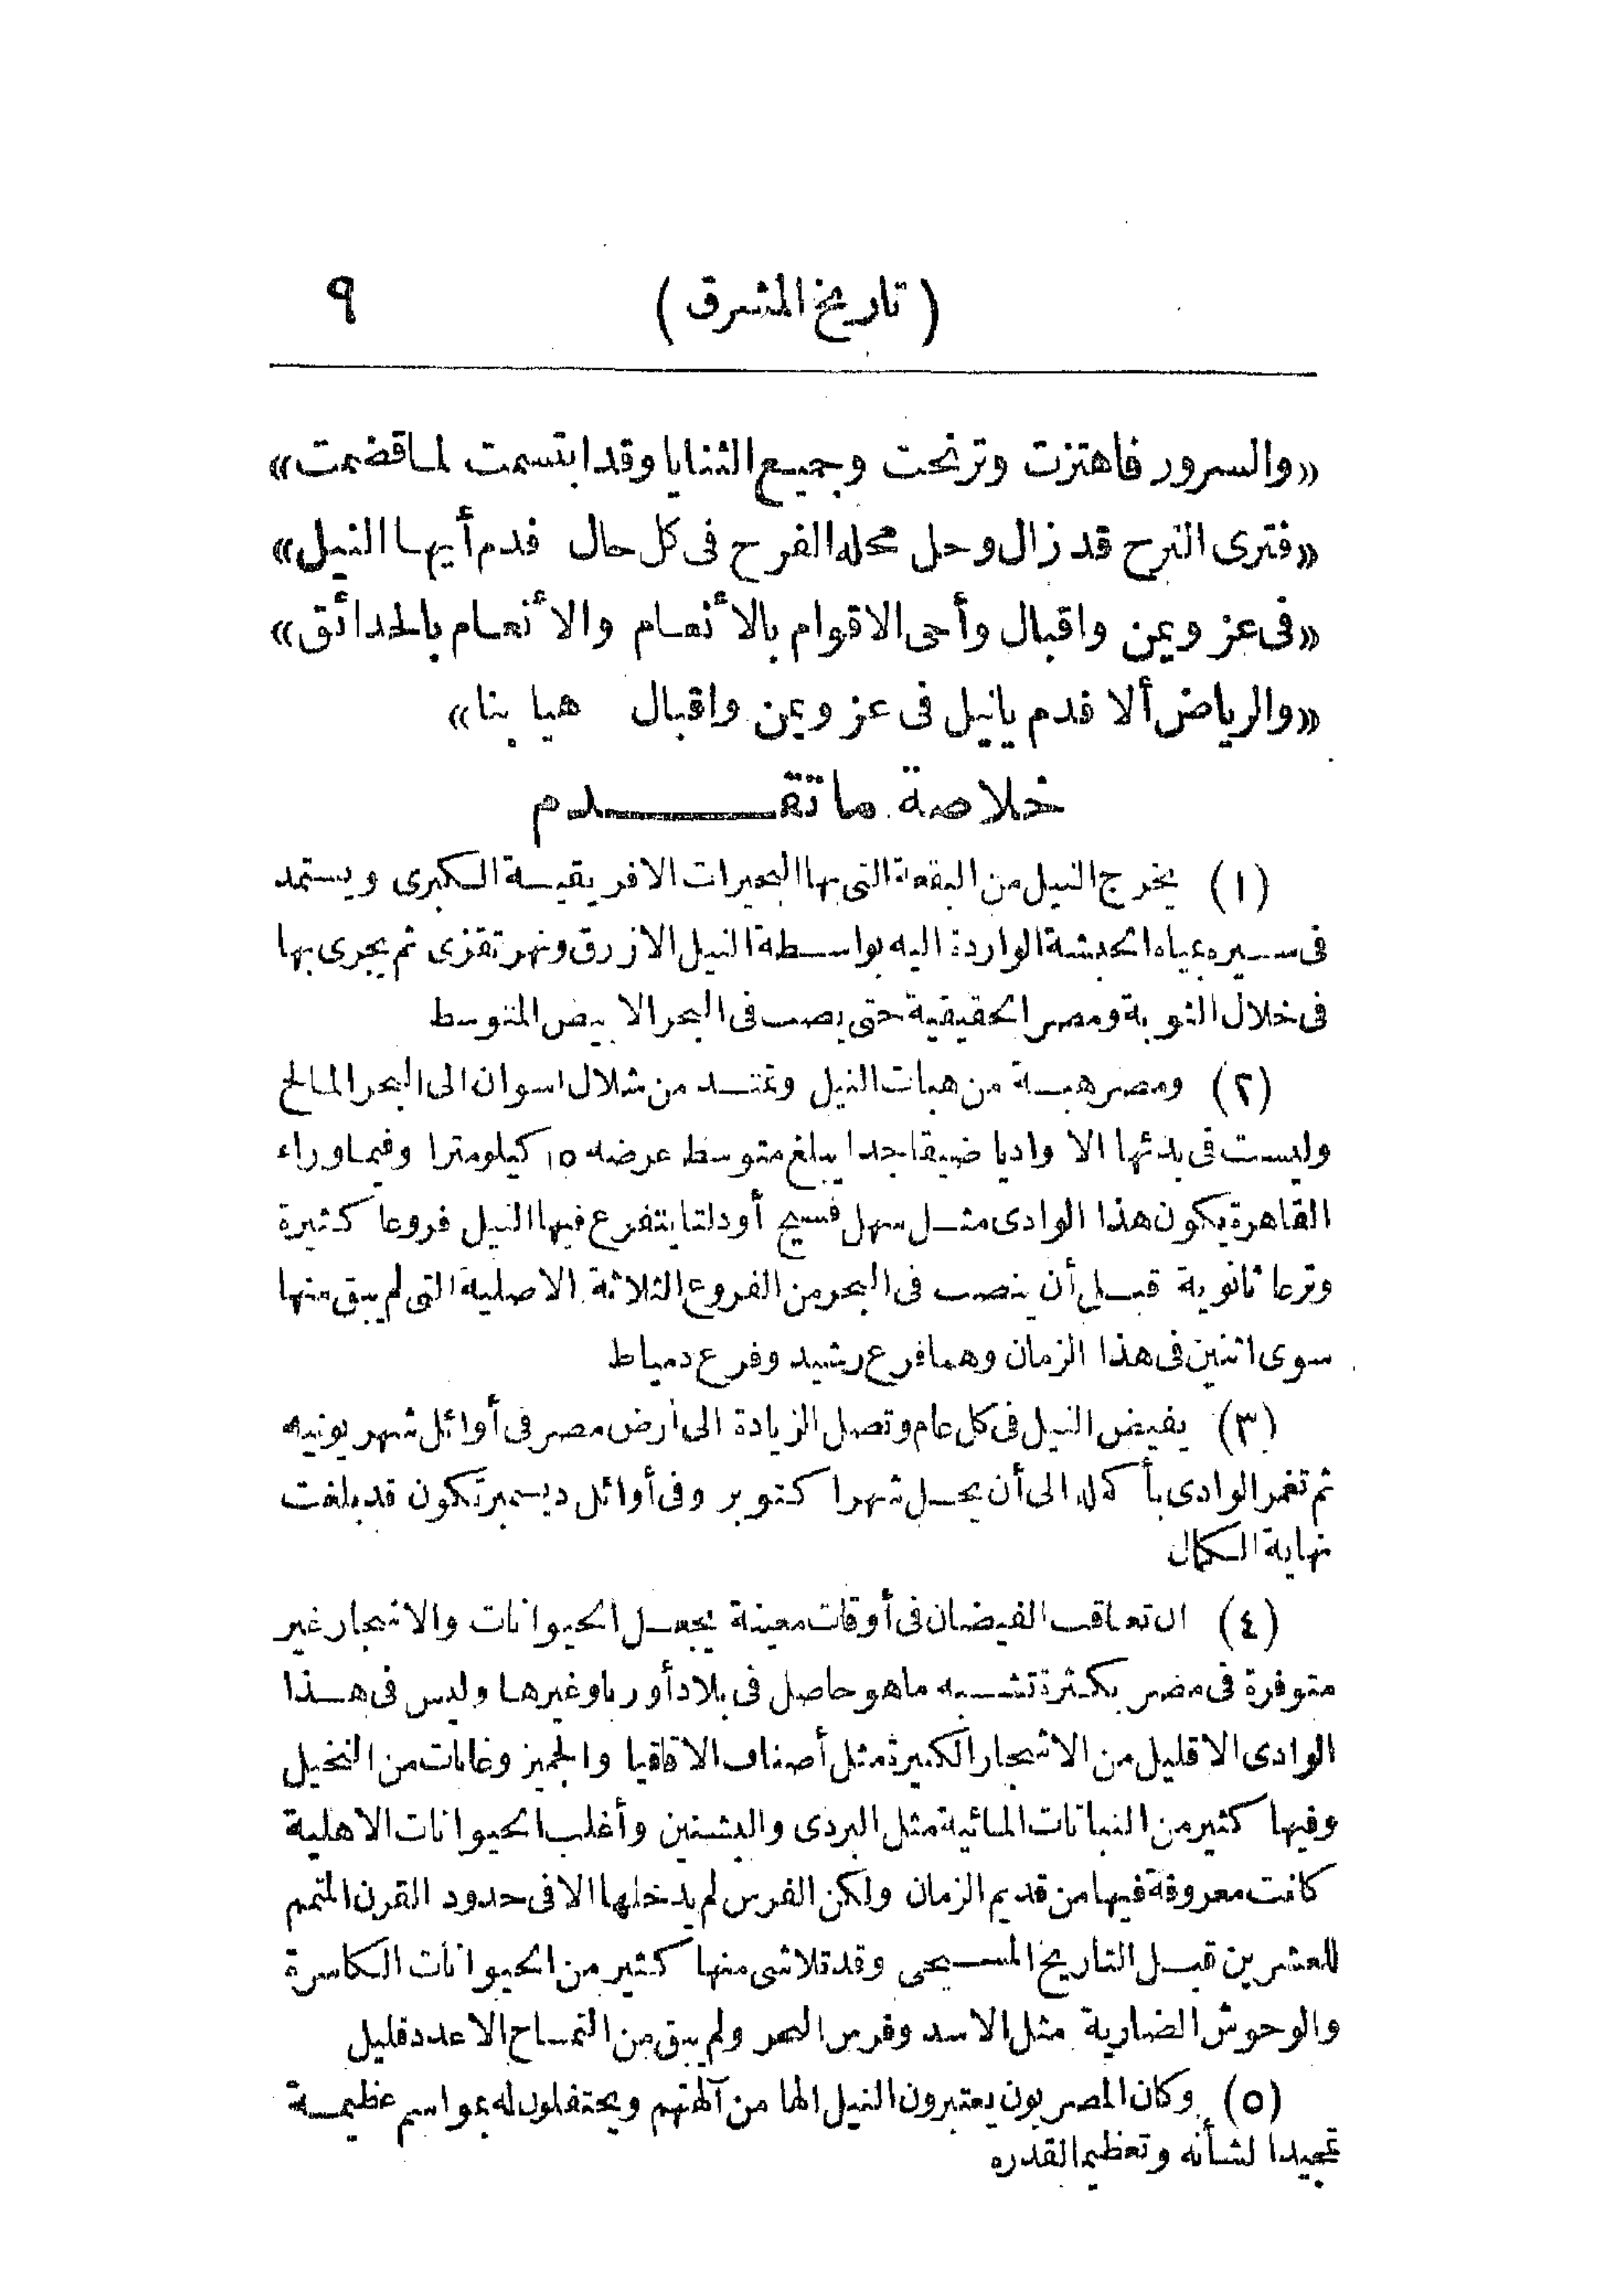 ( تاريخ المشرق ) ٩
«والسرور فاهتزت وترنحت وجميع الثنايا وقد ابتسمت لما قضمت»
«فترى الترح قد زال وحل محله الفرح فى كل حال فدم أيها النيل»
«فى عز ويمن واقبال وأحى الاقوام بالأنعام والأنعام بالحدائق»
«والرياض ألا فدم يانيل فى عز ويمن واقبال هيا بنا»
خلاصة ما تقدم
(١) يخرج النيل من البقعة التى بها البحيرات الافريقية الكبرى ويستمد
فى سيره بمياه الحبشة الواردة اليه بواسطة النيل الازرق ونهر تقزى ثم يجرى بها
فى خلال النوبة ومصر الحقيقية حتى يصب فى البحر الابيض المتوسط
(٢) ومصر هبة من هبات النيل وتمتد من شلال اسوان الى البحر المالح
وليست فى بدئها الا واديا ضيقا جدا يبلغ متوسط عرضه ١٥ كيلومترا وفيما وراء
القاهرة يكون هذا الوادى مثل سهل فسيح أو دلتا يتفرع فيها النيل فروعا كثيرة
وترعا ثانوية قبل أن ينصب فى البحر من الفروع الثلاثة الاصلية التى لم يبق منها
سوى اثنين فى هذا الزمان وهما فرع رشيد وفرع دمياط
(٣) يفيض النيل فى كل عام وتصل الزيادة الى أرض مصر فى أوائل شهر يونيه
ثم تغمر الوادى بأكمله الى أن يحل شهر اكتوبر وفى أوائل ديسمبر تكون قد بلغت
نهاية الكمال
(٤) ان تعاقب الفيضان فى أوقات معينة يجعل الحيوانات والاشجار غير
متوفرة فى مصر بكثرة تشبه ما هو حاصل فى بلاد أوربا وغيرها وليس فى هذا
الوادى الا قليل من الاشجار الكبيرة مثل أصناف الاقاقيا والجميز وغابات من النخيل
وفيها كثير من النباتات المائية مثل البردى والبشنين وأغلب الحيوانات الاهلية
كانت معروفة فيها من قديم الزمان ولكن الفرس لم يدخلها الا فى حدود القرن المتمم
للعشرين قبل التاريخ المسيحى وقد تلاشى منها كثير من الحيوانات الكاسرة
والوحوش الضارية مثل الاسد وفرس البحر ولم يبق من التمساح الا عدد قليل
(٥) وكان المصريون يعتبرون النيل الها من آلهتهم ويحتفلون له بمواسم عظيمة
تمجيدا لشأنه وتعظيما لقدره